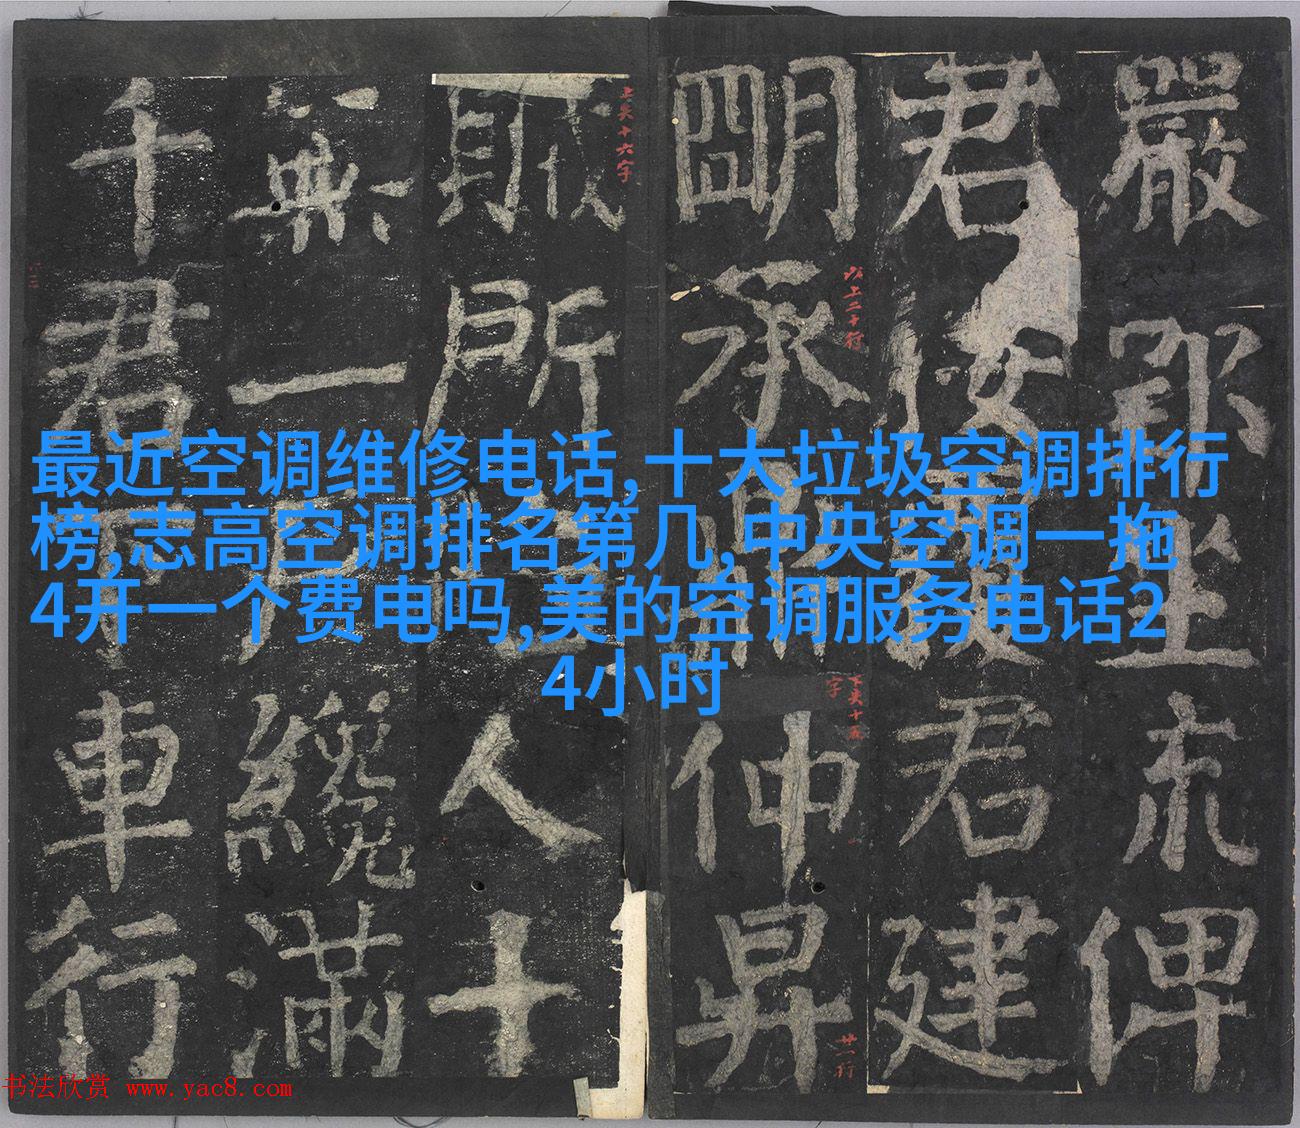 最近空调维修电话,十大垃圾空调排行
榜,志高空调排名第几,中央空调一拖
4开一个费电吗,美的空调服务电话2
4小时
嚴郢坐俾
君君建
朙承仲昇
以上二十行
下失十五字
廿一行
賊所人十
上失十六字
無一纔滿
千君車行
书法欣赏 www.yac8.com